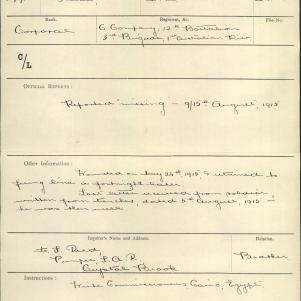 Rank. Regiment, &c. File No.
Corporal C Company, 12th Battalion
3rd Brigade, 1st Australian Div.
C/L
OFFICIAL REPORTS:
Reported "missing" — 9/15th August, 1915
Other Information:
Wounded on May 24th, 1915, & returned to
firing line a fortnight later.
Last letter received from soldier
written from trenches, dated 5th August, 1915 —
he was then well
Inquirer's Name and Address. Relation.
Reid, Brother
Crystal Brook
Instructions:
Write Commissioners Cairo, Egypt